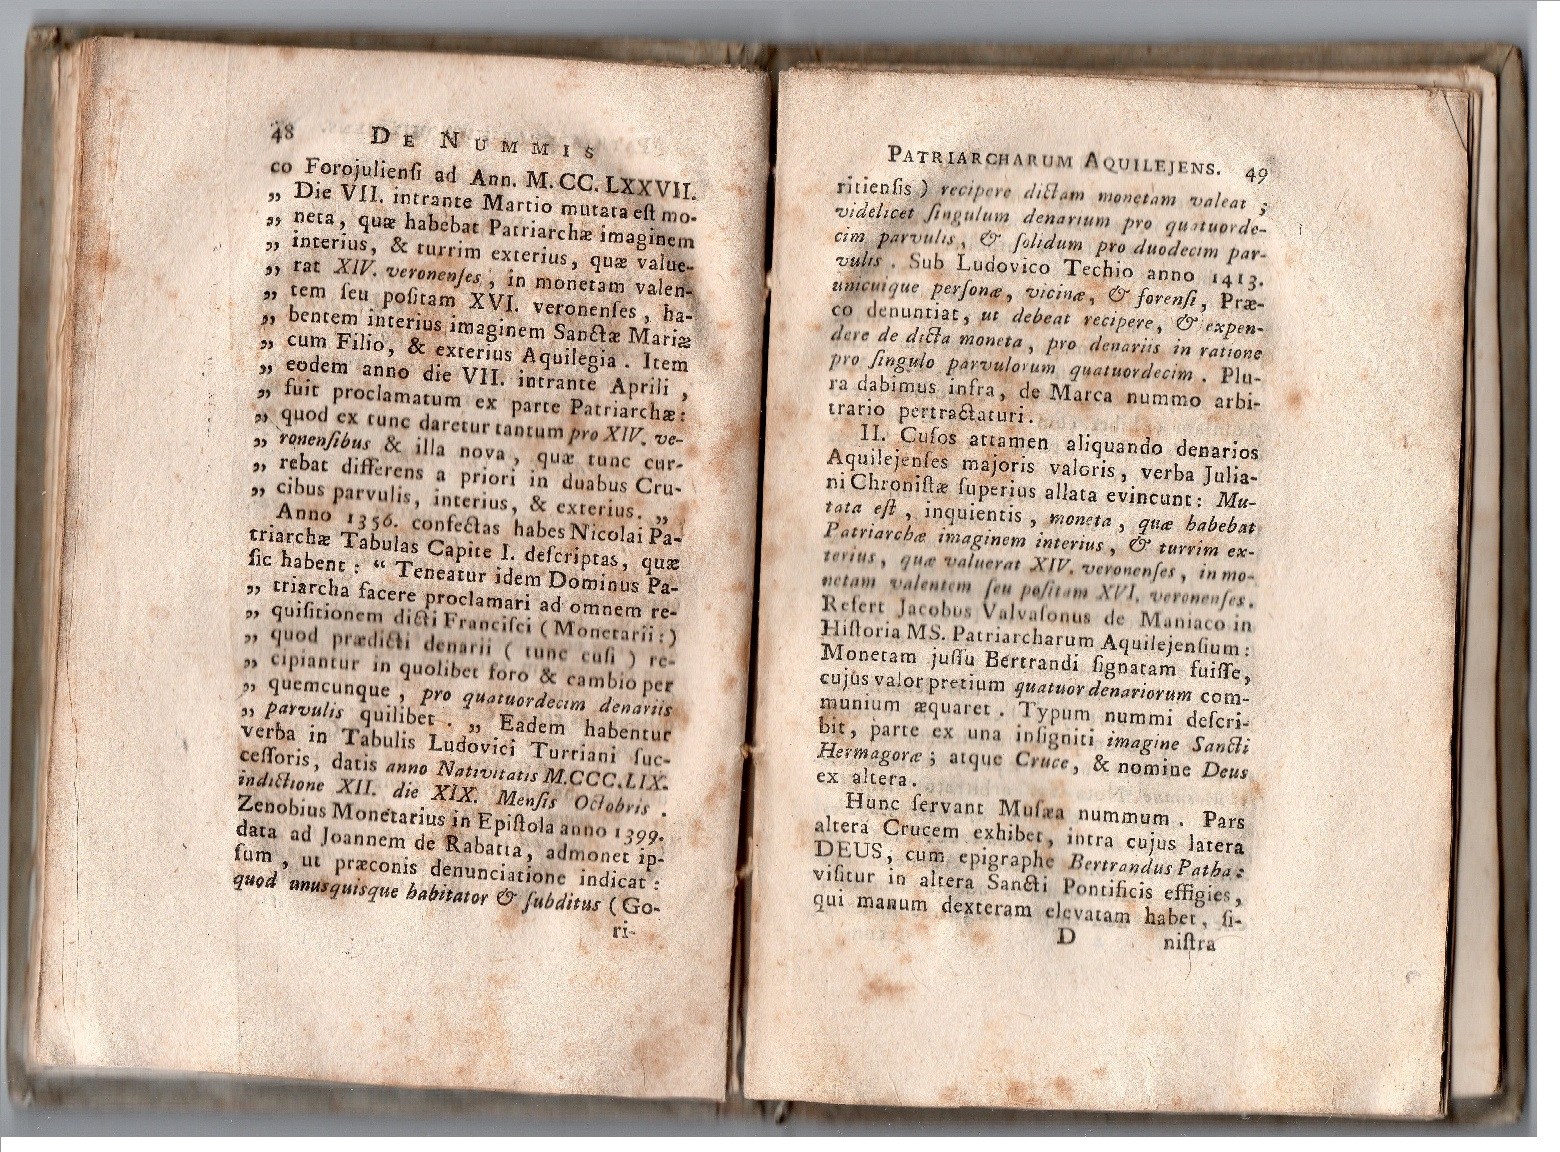 48 DE NUMMIS
co Forojulienſi ad Ann. M.CC.LXXVII.
„ Die VII. intrante Martio mutata eſt mo-
„ neta, quæ habebat Patriarchæ imaginem
„ interius, & turrim exterius, quæ value-
„ rat XIV. veronenſes, in monetam valen-
„ tem ſeu poſitam XVI. veronenſes, ha-
„ bentem interius imaginem Sanctæ Mariæ
„ cum Filio, & exterius Aquilegia. Item
„ eodem anno die VII. intrante Aprili,
„ fuit proclamatum ex parte Patriarchæ:
„ quod ex tunc daretur tantum pro XIV. ve-
„ ronenſibus & illa nova, quæ tunc cur-
„ rebat differens a priori in duabus Cru-
„ cibus parvulis, interius, & exterius. „
Anno 1356. confectas habes Nicolai Pa-
triarchæ Tabulas Capite I. deſcriptas, quæ
ſic habent: “ Teneatur idem Dominus Pa-
„ triarcha facere proclamari ad omnem re-
„ quiſitionem dicti Franciſci (Monetarii:)
„ quod prædicti denarii (tunc cuſi) re-
„ cipiantur in quolibet foro & cambio per
„ quemcunque, pro quatuordecim denariis
„ parvulis quilibet. „ Eadem habentur
verba in Tabulis Ludovici Turriani ſuc-
ceſſoris, datis anno Nativitatis M.CCC.LIX.
indictione XII. die XIX. Menſis Octobris.
Zenobius Monetarius in Epiſtola anno 1399.
data ad Joannem de Rabatta, admonet ip-
ſum, ut præconis denunciatione indicat:
quod unusquisque habitator & ſubditus (Go-
ri-
PATRIARCHARUM AQUILEJENS. 49
ritienſis) recipere dictam monetam valeat;
videlicet ſingulum denarium pro quatuorde-
cim parvulis, & ſolidum pro duodecim par-
vulis. Sub Ludovico Techio anno 1413.
unicuique perſonæ, vicinæ, & forenſi, Præ-
co denuntiat, ut debeat recipere, & expen-
dere de dicta moneta, pro denariis in ratione
pro ſingulo parvulorum quatuordecim. Plu-
ra dabimus infra, de Marca nummo arbi-
trario pertractaturi.
II. Cuſos attamen aliquando denarios
Aquilejenſes majoris valoris, verba Julia-
ni Chroniſtæ ſuperius allata evincunt: Mu-
tata eſt, inquientis, moneta, quæ habebat
Patriarchæ imaginem interius, & turrim ex-
terius, quæ valuerat XIV. veronenſes, in mo-
netam valentem ſeu poſitam XVI. veronenſes.
Refert Jacobus Valvaſonus de Maniaco in
Hiſtoria MS. Patriarcharum Aquilejenſium:
Monetam juſſu Bertrandi ſignatam fuiſſe,
cujus valor pretium quatuor denariorum com-
munium æquaret. Typum nummi deſcri-
bit, parte ex una inſigniti imagine Sancti
Hermagoræ; atque Cruce, & nomine Deus
ex altera.
Hunc ſervant Muſæa nummum. Pars
altera Crucem exhibet, intra cujus latera
DEUS, cum epigraphe Bertrandus Patha:
viſitur in altera Sancti Pontificis effigies,
qui manum dexteram elevatam habet, ſi-
D niſtra